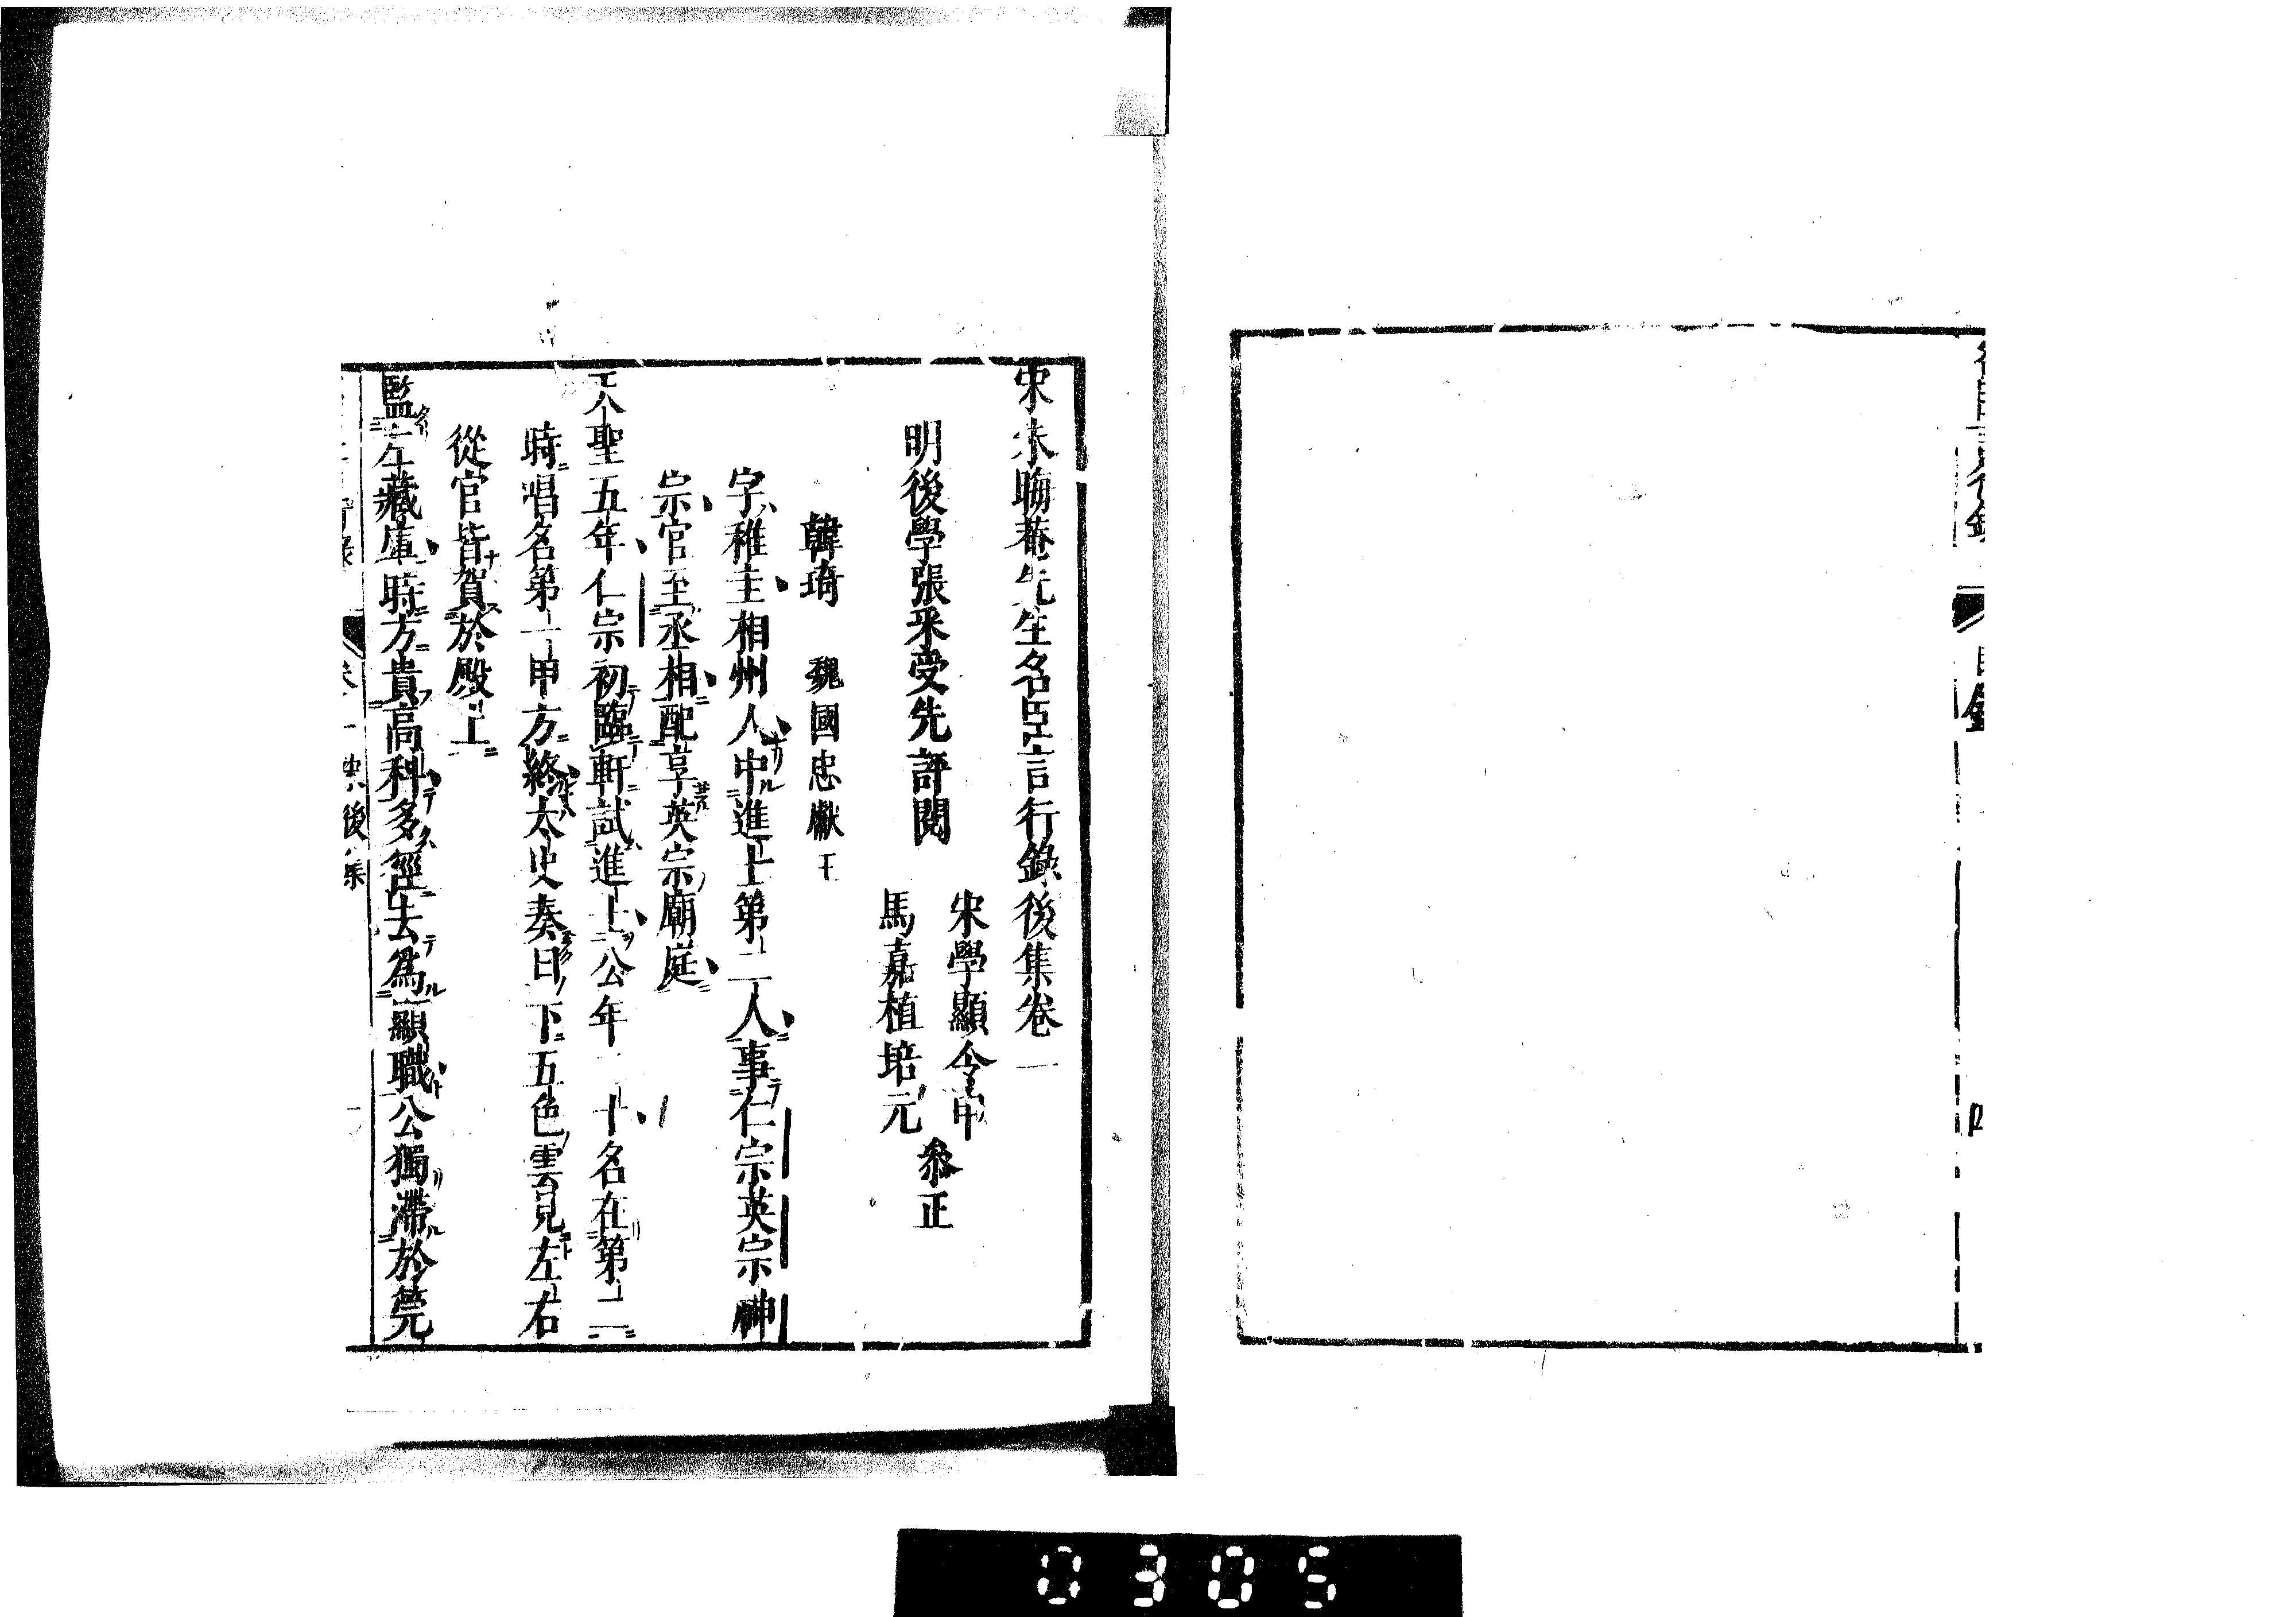 宋朱晦菴先生名臣言行錄後集卷一
明後學張采受先評閱
宋學顯令申
馬嘉植培元
叅正
韓琦　魏國忠獻王
字稚圭相州人中進士第二人事仁宗英宗神
宗官至丞相配享英宗廟庭
天聖五年仁宗初臨軒試進士公年二十名在第二
時唱名第一甲方終太史奏日下五色雲見左右
從官皆賀於殿上
監左藏庫時方貴高科多徑去爲顯職公獨滯於筦
目錄
0305